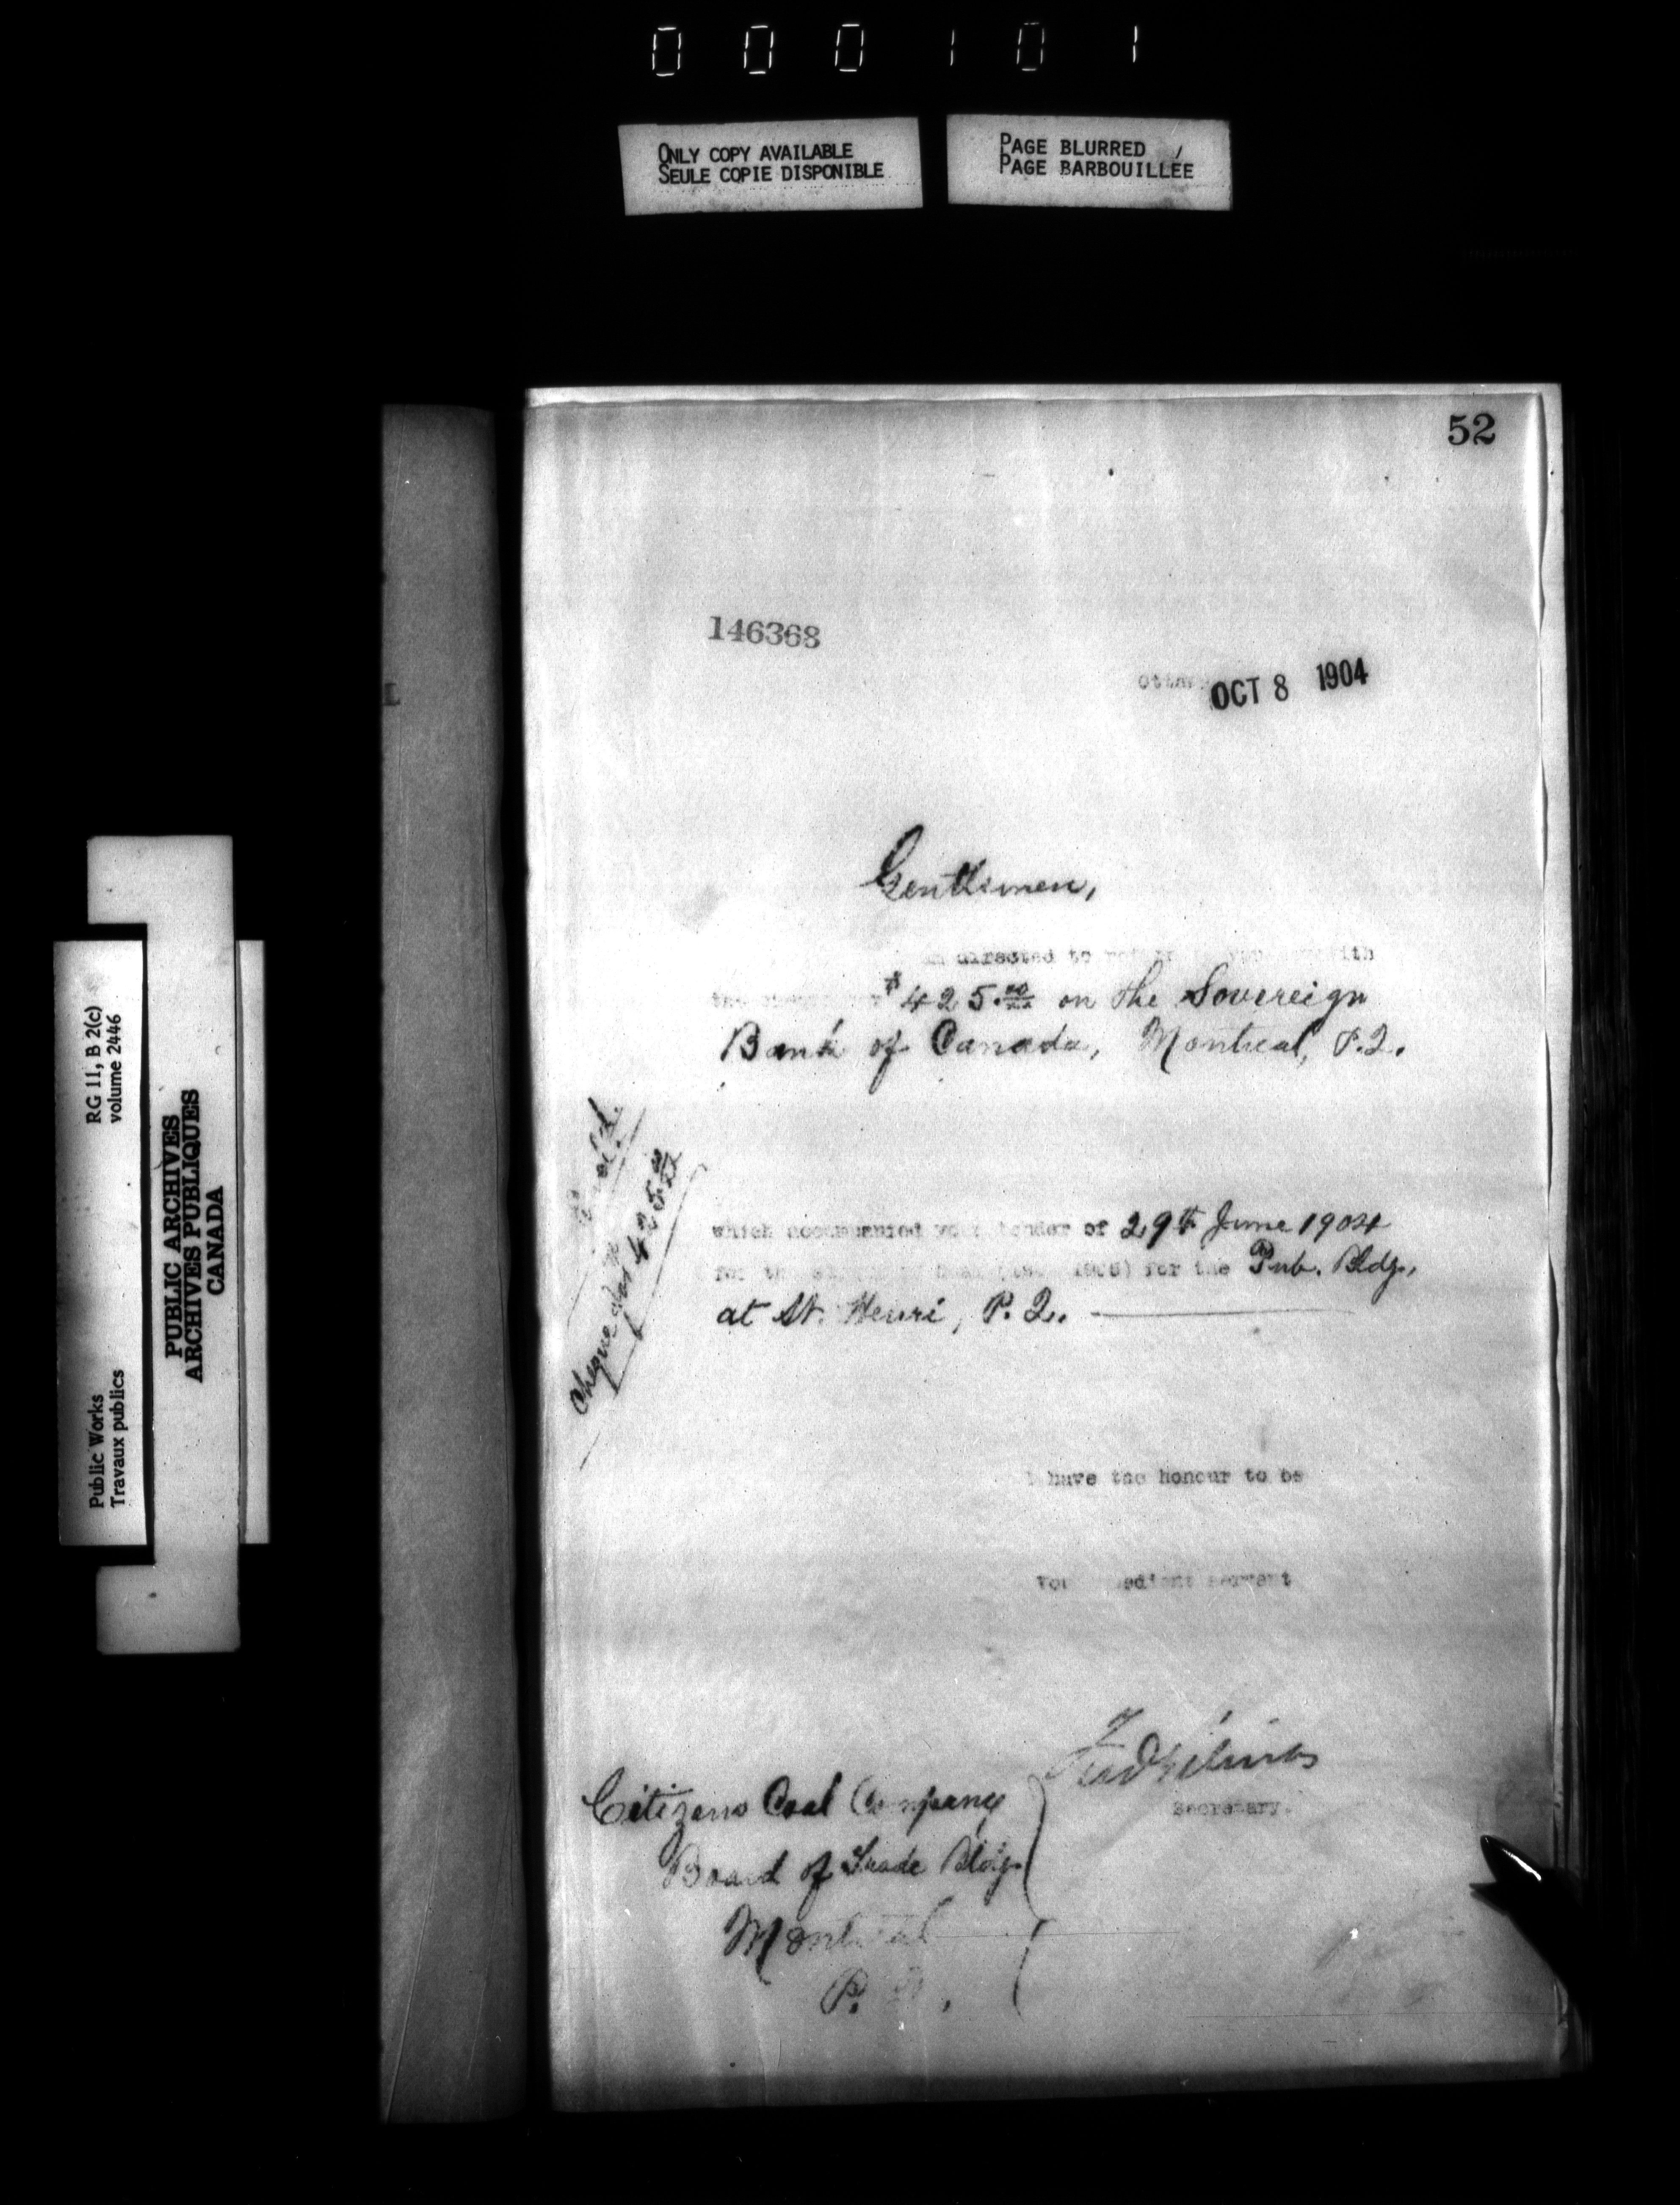 000101
ONLY COPY AVAILABLE
SEULE COPIE DISPONIBLE
PAGE BLURRED
PAGE BARBOUILLÉE
52
146368
Ottawa OCT 8 1904
Gentlemen,
am directed to with
the $425.00 on the Sovereign
Bank of Canada, Montreal, P.Q.
Cheque for 425.00
which accompanied your tender of 29th June 1904
for the for the Pub. Bldg,
at St. Henri, P.Q.
I have the honour to be
Your obedient servant
Secretary.
Citizens Coal Company
Board of Trade Bldg.
Montreal
P.
Public Works
Travaux publics
RG 11, B 2(c)
volume 2446
PUBLIC ARCHIVES
ARCHIVES PUBLIQUES
CANADA